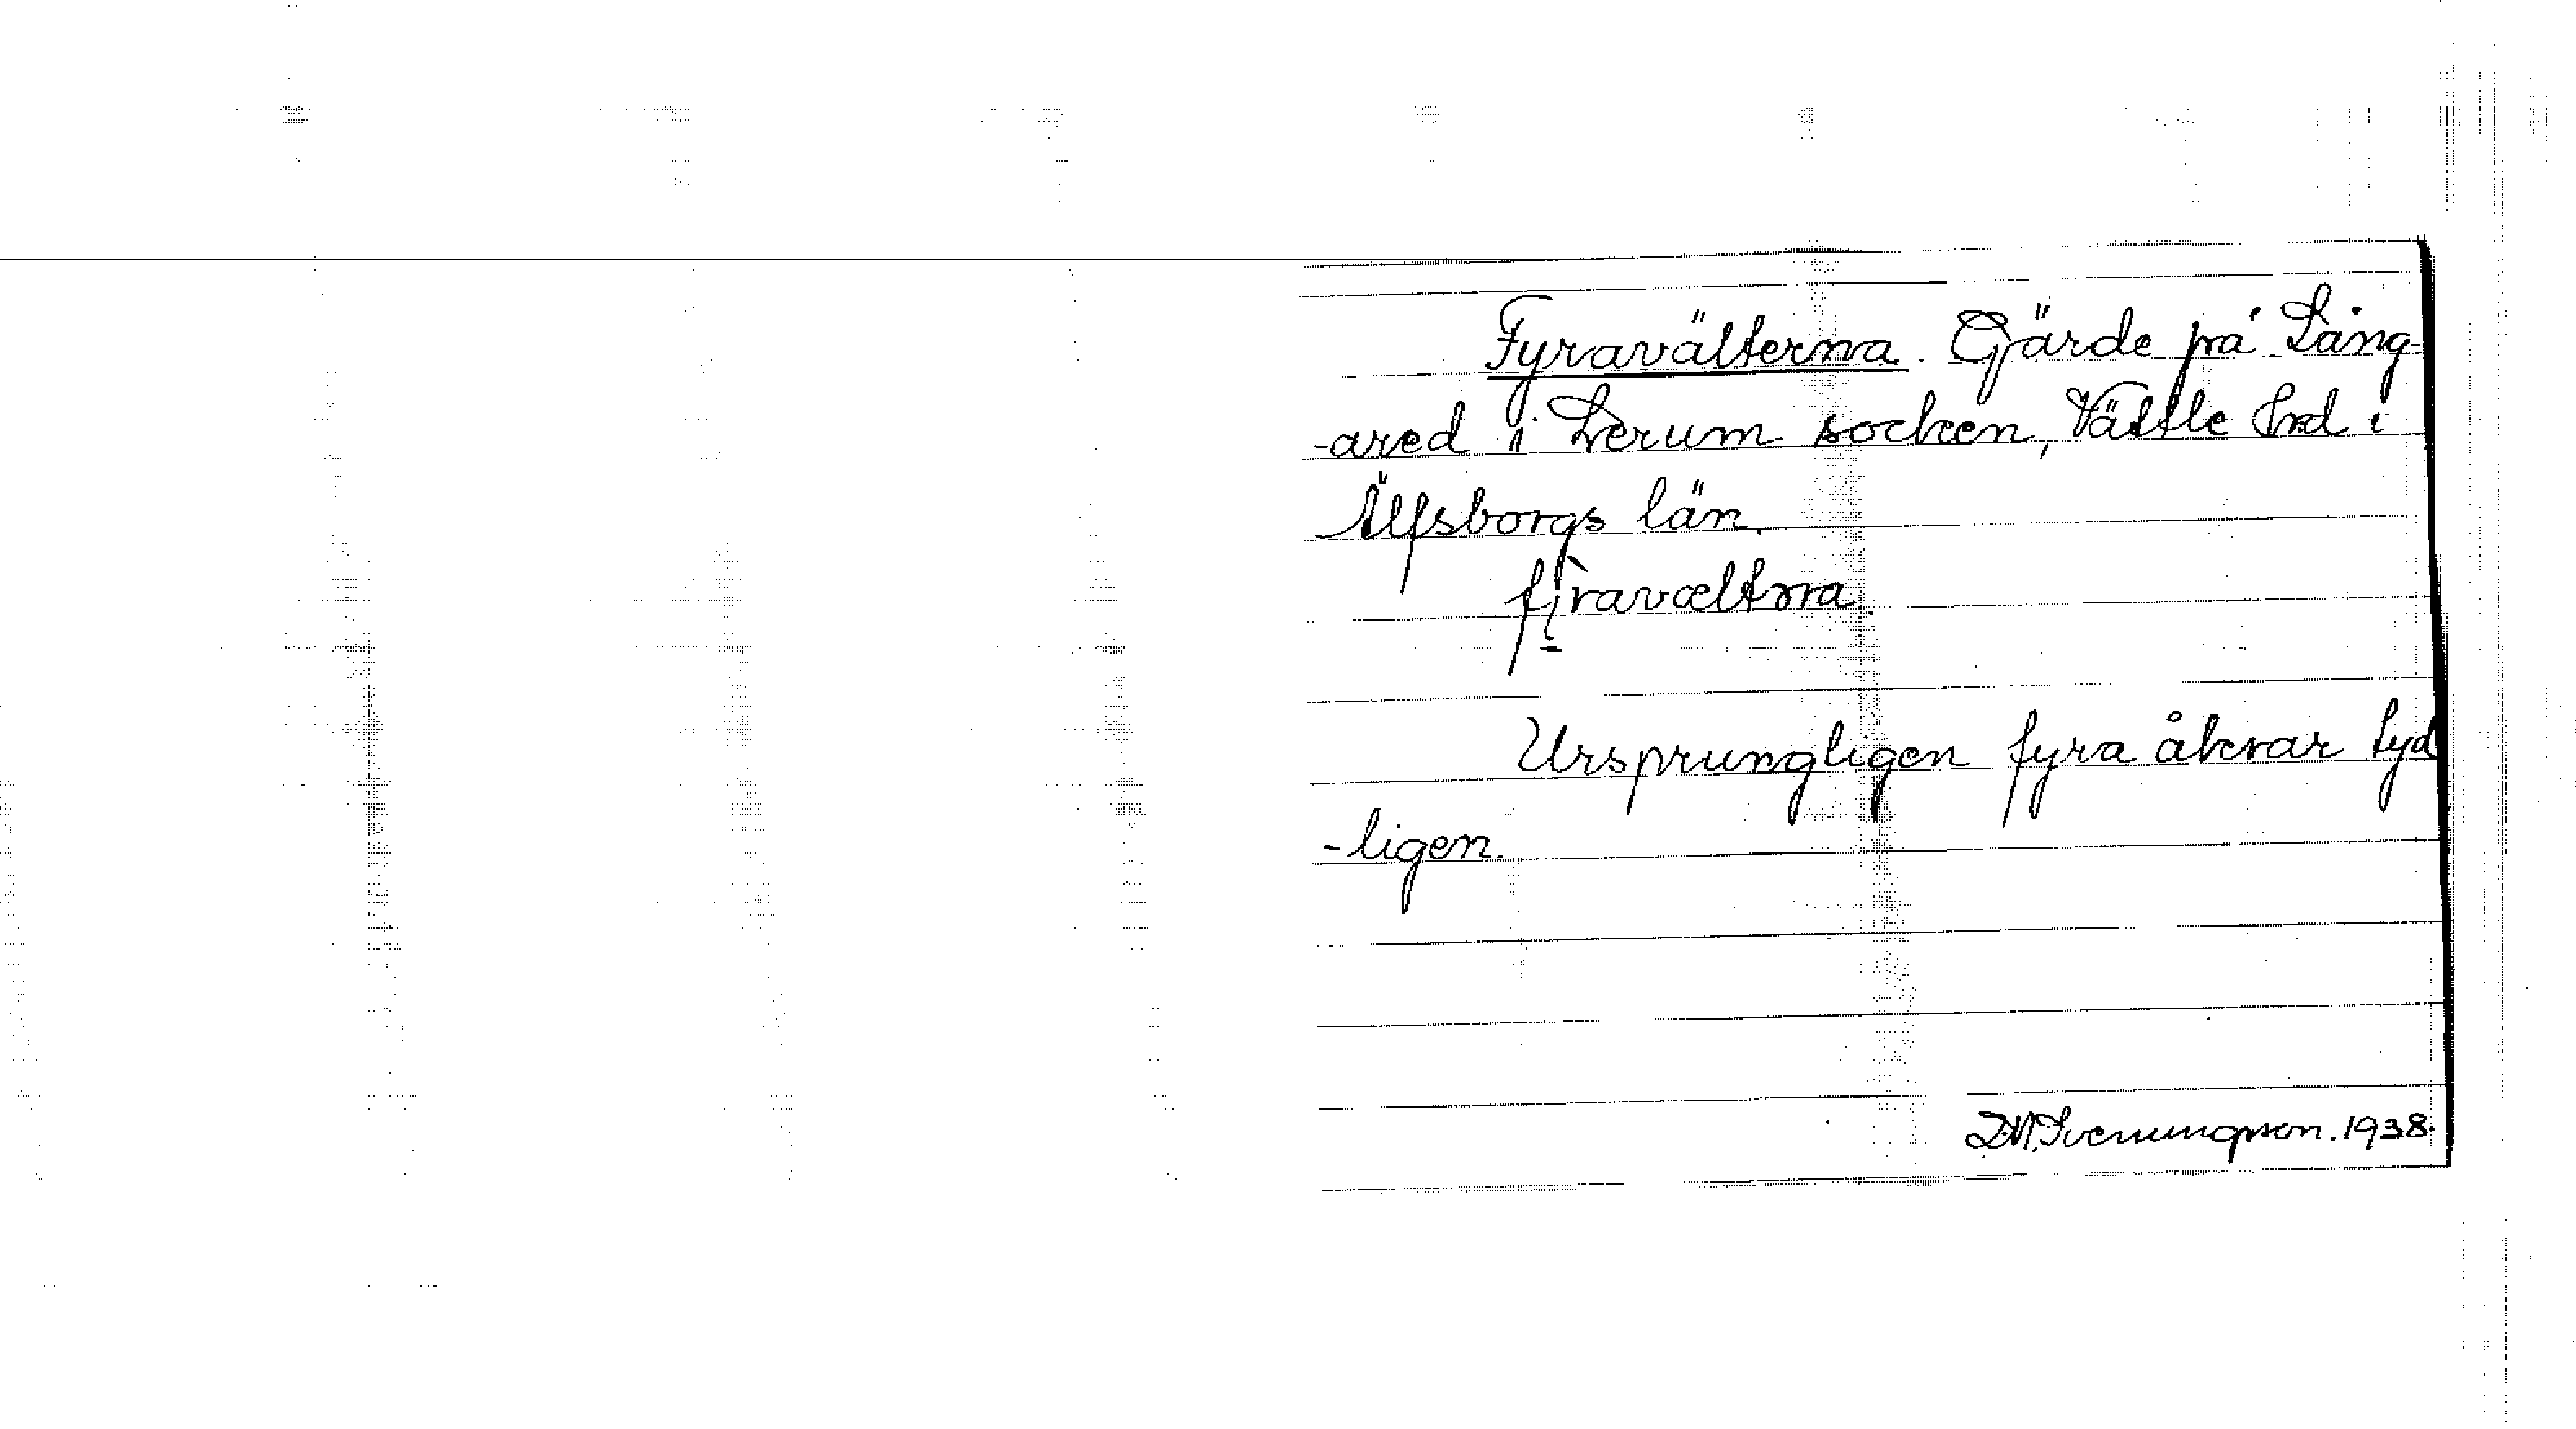 Fyravälterna. Gjärde på Lång-
-ared i Lerum socken, Vättle Hrd i
Älfsborgs län.
fỳravæltṇa
Ursprungligen fyra åkrar tyd
-ligen.
D.M.Svenungsson. 1938.